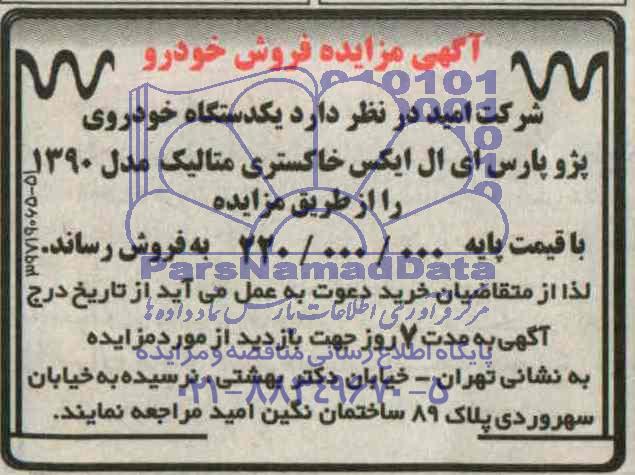 آگهی مزایده فروش خودرو
شرکت امید در نظر دارد یکدستگاه خودروی
پژو پارس ای ال ایکس خاکستری متالیک مدل ۱۳۹۰
را از طریق مزایده
با قیمت پایه ۲۲۰/۰۰۰/۰۰۰ به فروش رساند.
لذا از متقاضیان خرید دعوت به عمل می آید از تاریخ درج
آگهی به مدت ۷ روز جهت بازدید از مورد مزایده
به نشانی تهران – خیابان دکتر بهشتی، نرسیده به خیابان
سهروردی پلاک ۸۹ ساختمان نگین امید مراجعه نمایند.
ParsNamadData
مرکز فرآوری اطلاعات پارس نماد داده ها
پایگاه اطلاع رسانی مناقصه و مزایده
۰۲۱-۸۸۳۴۹۶۷۰-۵